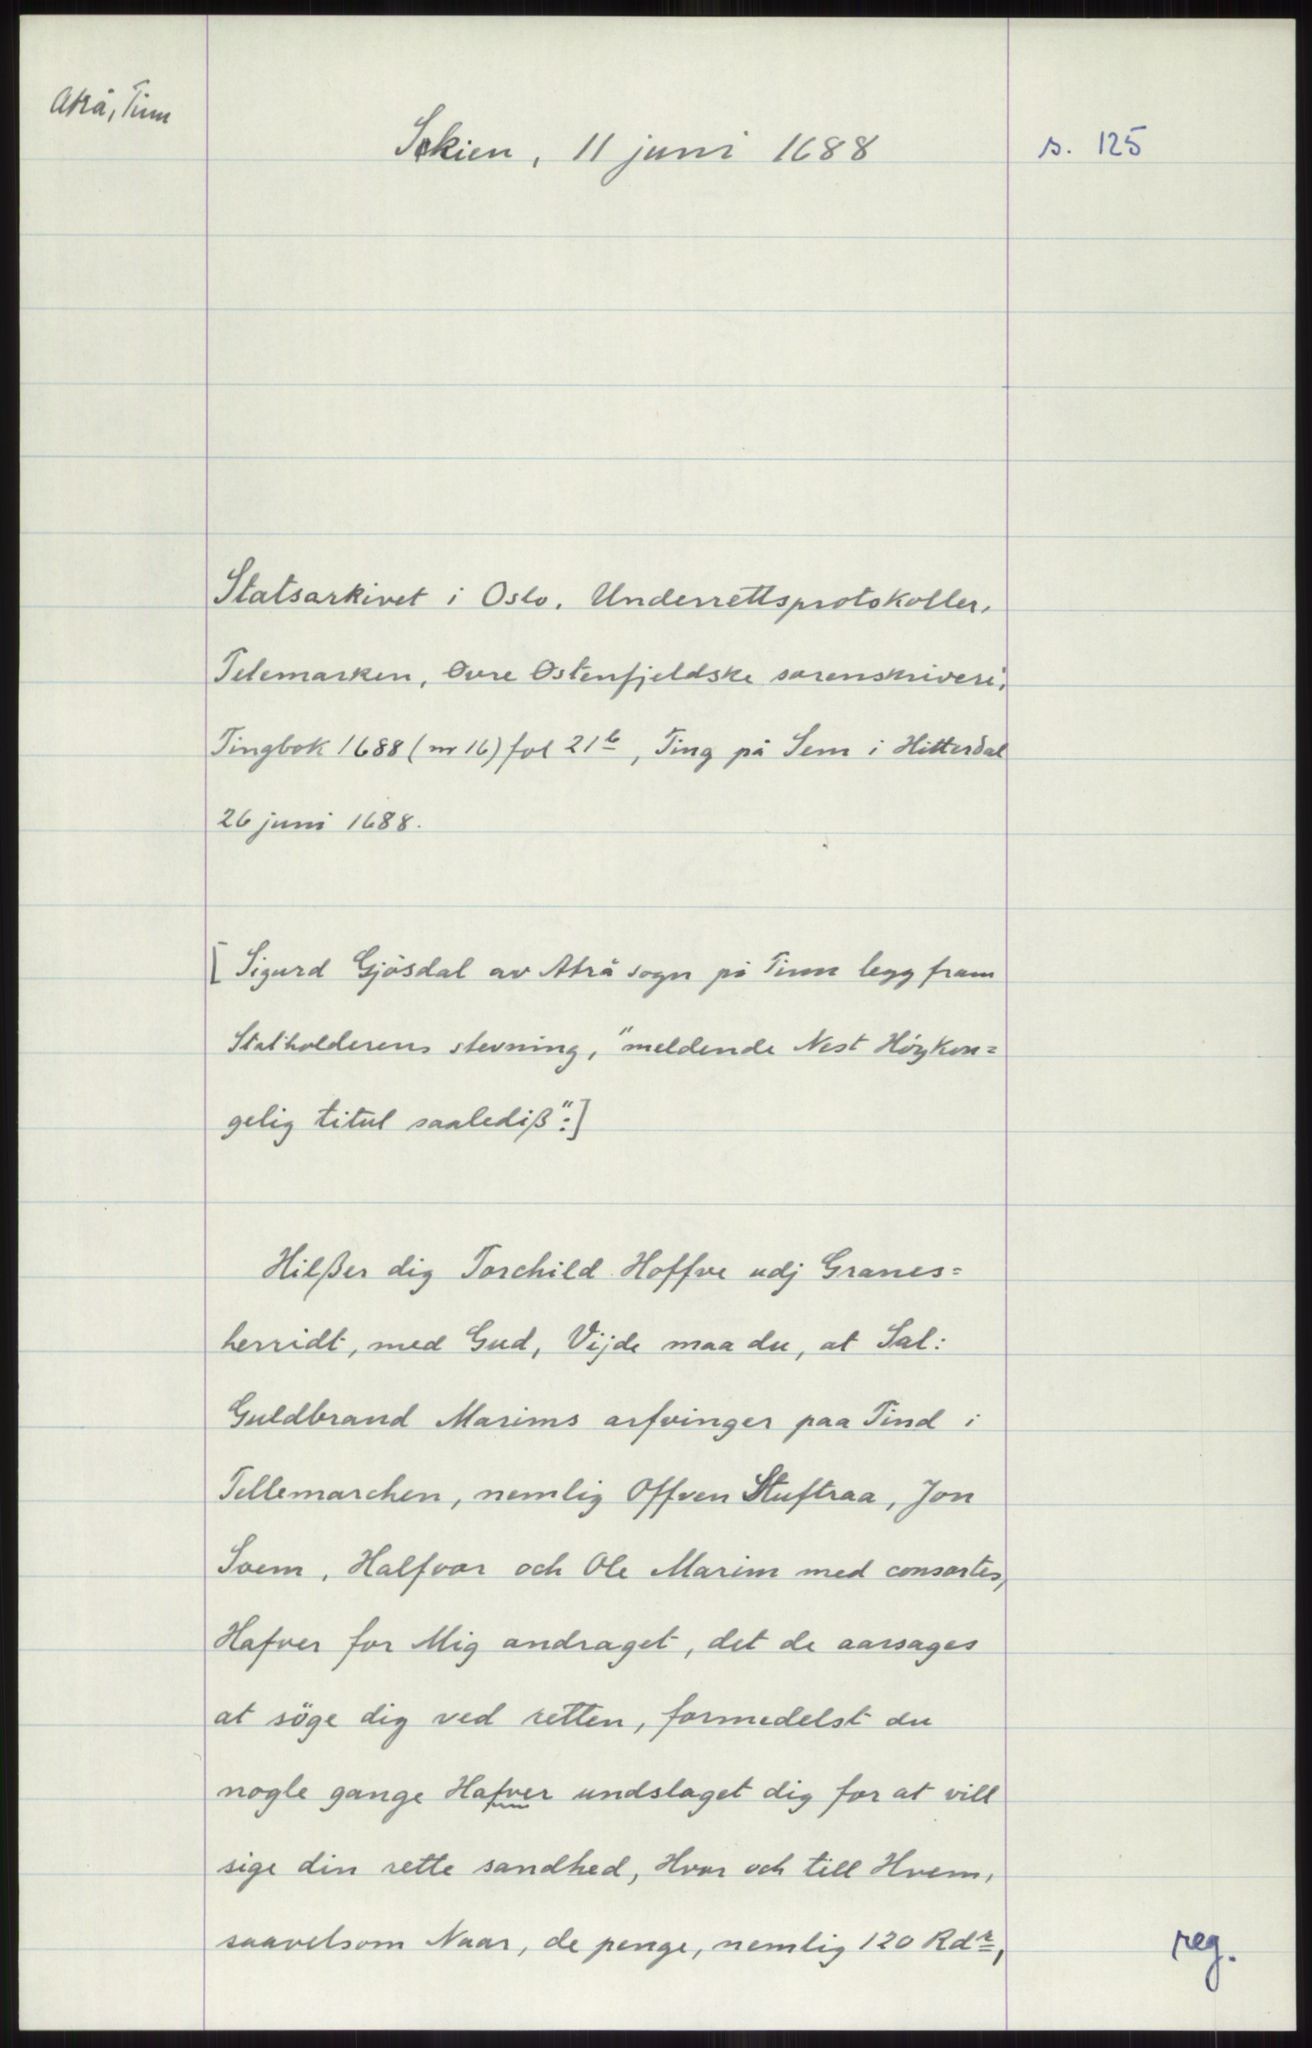 Atrå, Tinn
Skien, 11 juni 1688
s. 125
Statsarkivet i Oslo. Underrettsprotokoller,
Telemarken, Øvre Østenfjeldske sorenskriveri,
Tingbok 1688 (nr 16) fol 21b, Ting på Sem i Hitterdal
26 juni 1688.
[Sigurd Gjösdal av Atrå sogn på Tinn legg fram
Statholderens stevning, "meldende Nest Höykon=
gelig titul saalediß":]
Hilßer dig Torchild Hoffve udj Granes=
herridt, med Gud, Vijde maa du, at Sal:
Guldbrand Marims arfvinger paa Tind i
Tellemarchen, nemlig Offven Stuftraa, Jon
Svem, Halfvor och Ole Marim med consortes,
Hafver for Mig andraget, det de aarsages
at söge dig ved retten, formedelst du
nogle gange Hafver undslaget dig for at vill
sige din rette sandhed, Hvor och till Hvem,
saavelsom Naar, de penge, nemlig 120 Rdr,
reg.